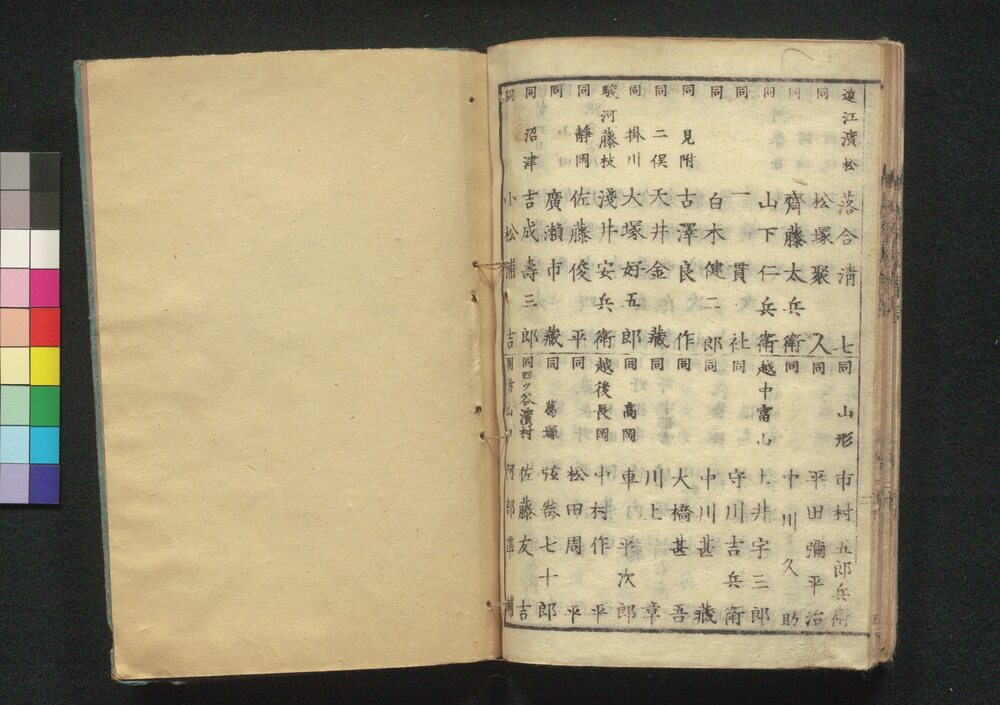 遠江濱松 落合清七
同 松塚聚久
同 齊藤太兵衛
同 山下仁兵衛
同 一貫社
同 白木健二郎
同 見附 古澤良作
同 二俣 天井金藏
同 掛川 大塚好五郎
駿河藤枝 淺井安兵衛
同 靜岡 佐藤俊平
同 廣瀨市藏
同 沼津 吉成壽三郎
同 小松浦吉
同 山形 市村五郎兵衛
同 平田彌平治
同 中川久助
越中富山 土井宇三郎
同 守川吉兵衛
同 中川甚藏
同 大橋甚吾
同 川上章
同 高岡 車平次郎
越後長岡 中村作平
同 松田周平
同 葛塚 弦卷七十郎
同四ツ谷濱村 佐藤友吉
周防山口 阿部準輔